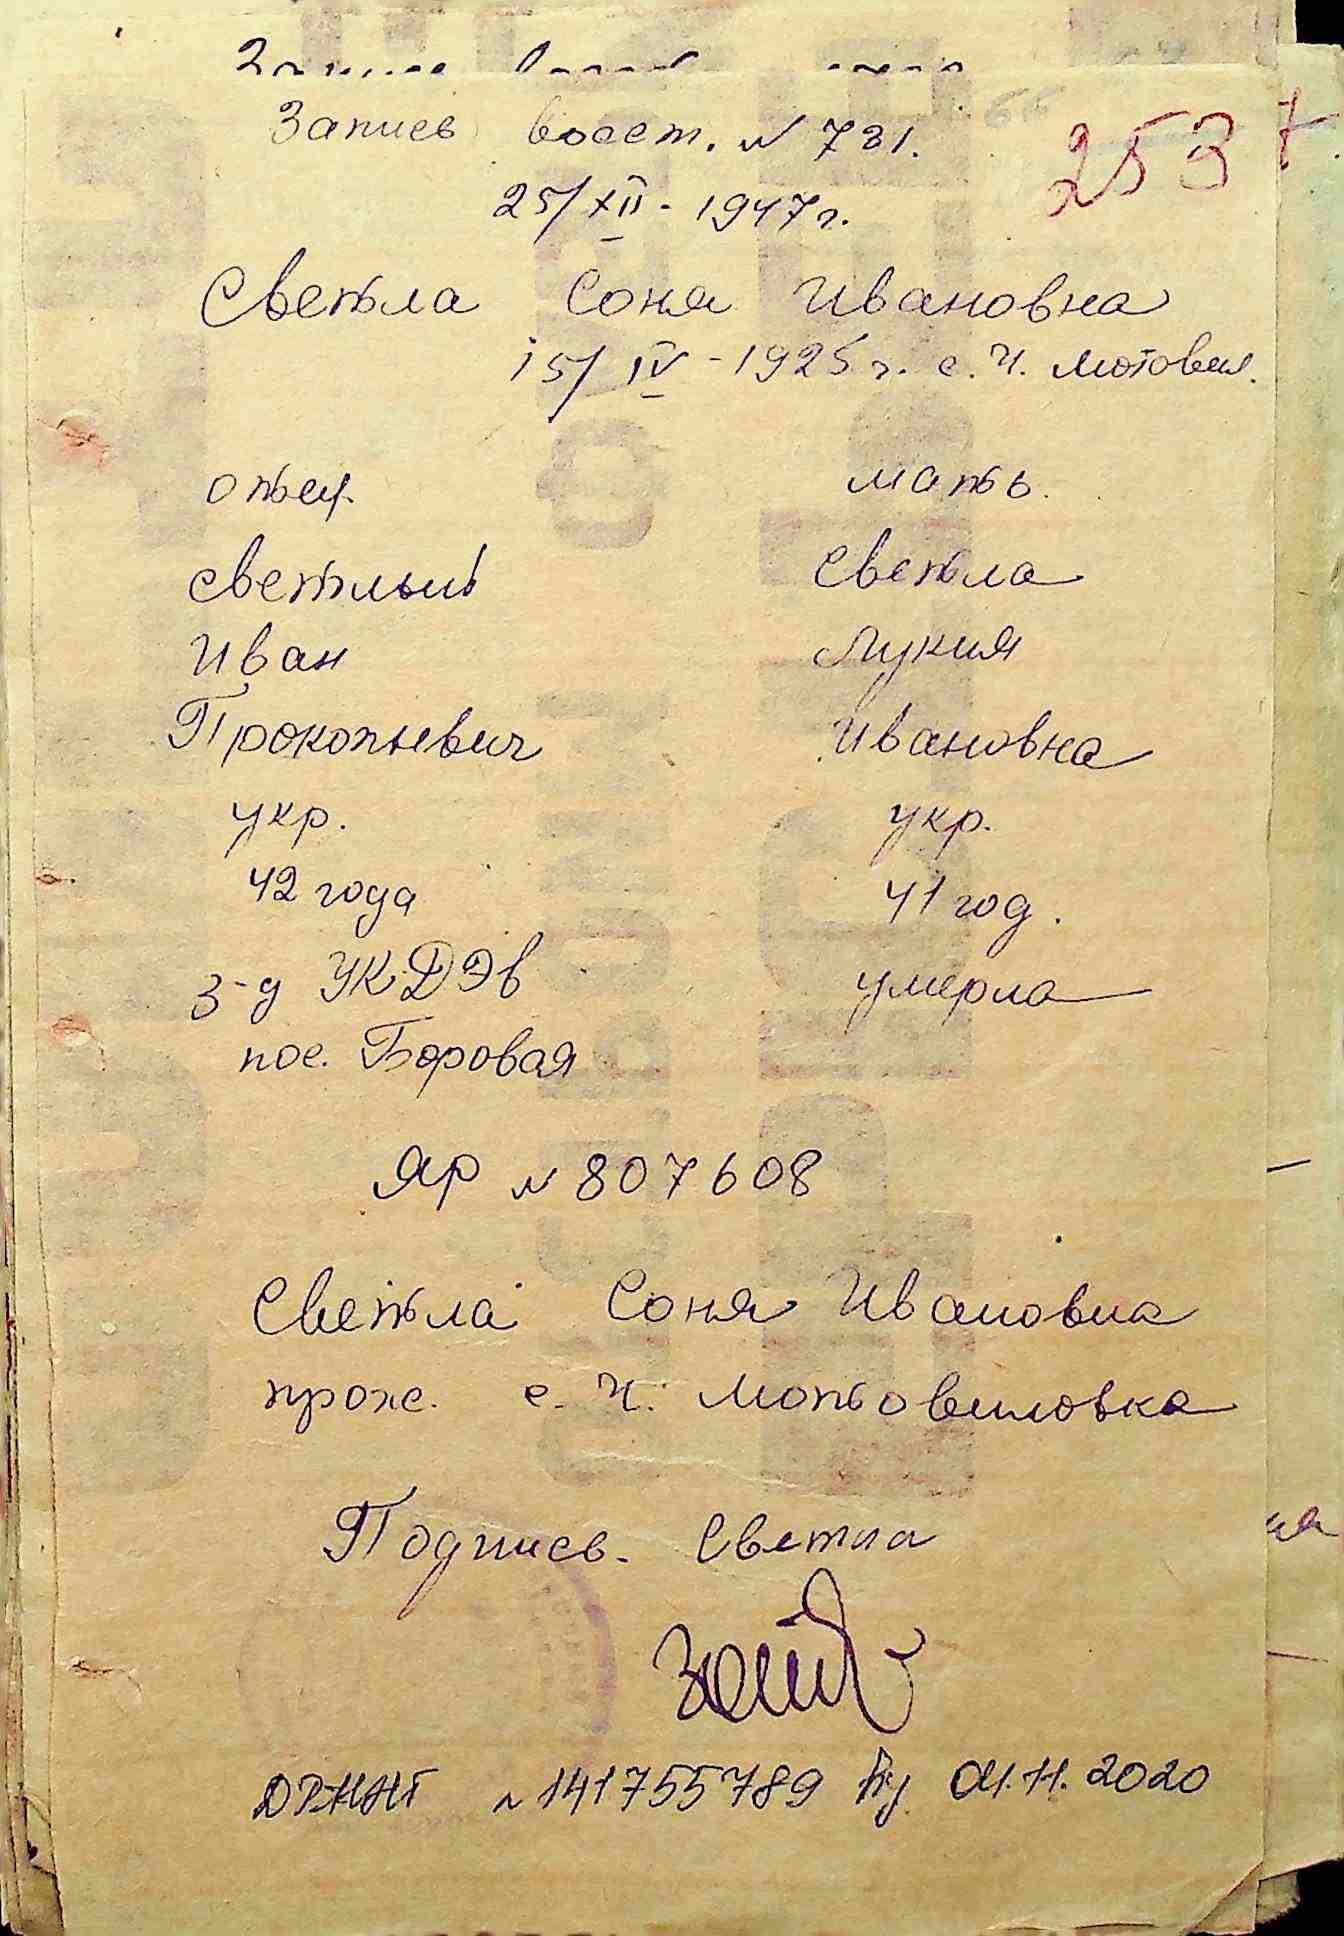 Запись восст. N 781.
253
25/XII - 1947 г.
Светла Соня Ивановна
15/IV - 1925 г. с. Ч. Мотовил.
отец. мать.
Светлый Светла
Иван Лукия
Прокопьевич Ивановна
укр. укр.
42 года 41 год.
з-д УКДЭв умерла
пос. Боровая
ЯР N 807608
Светла Соня Ивановна
прож. с. Ч. Мотовиловка
Подпись. Светла
N 141755789 04.11.2020